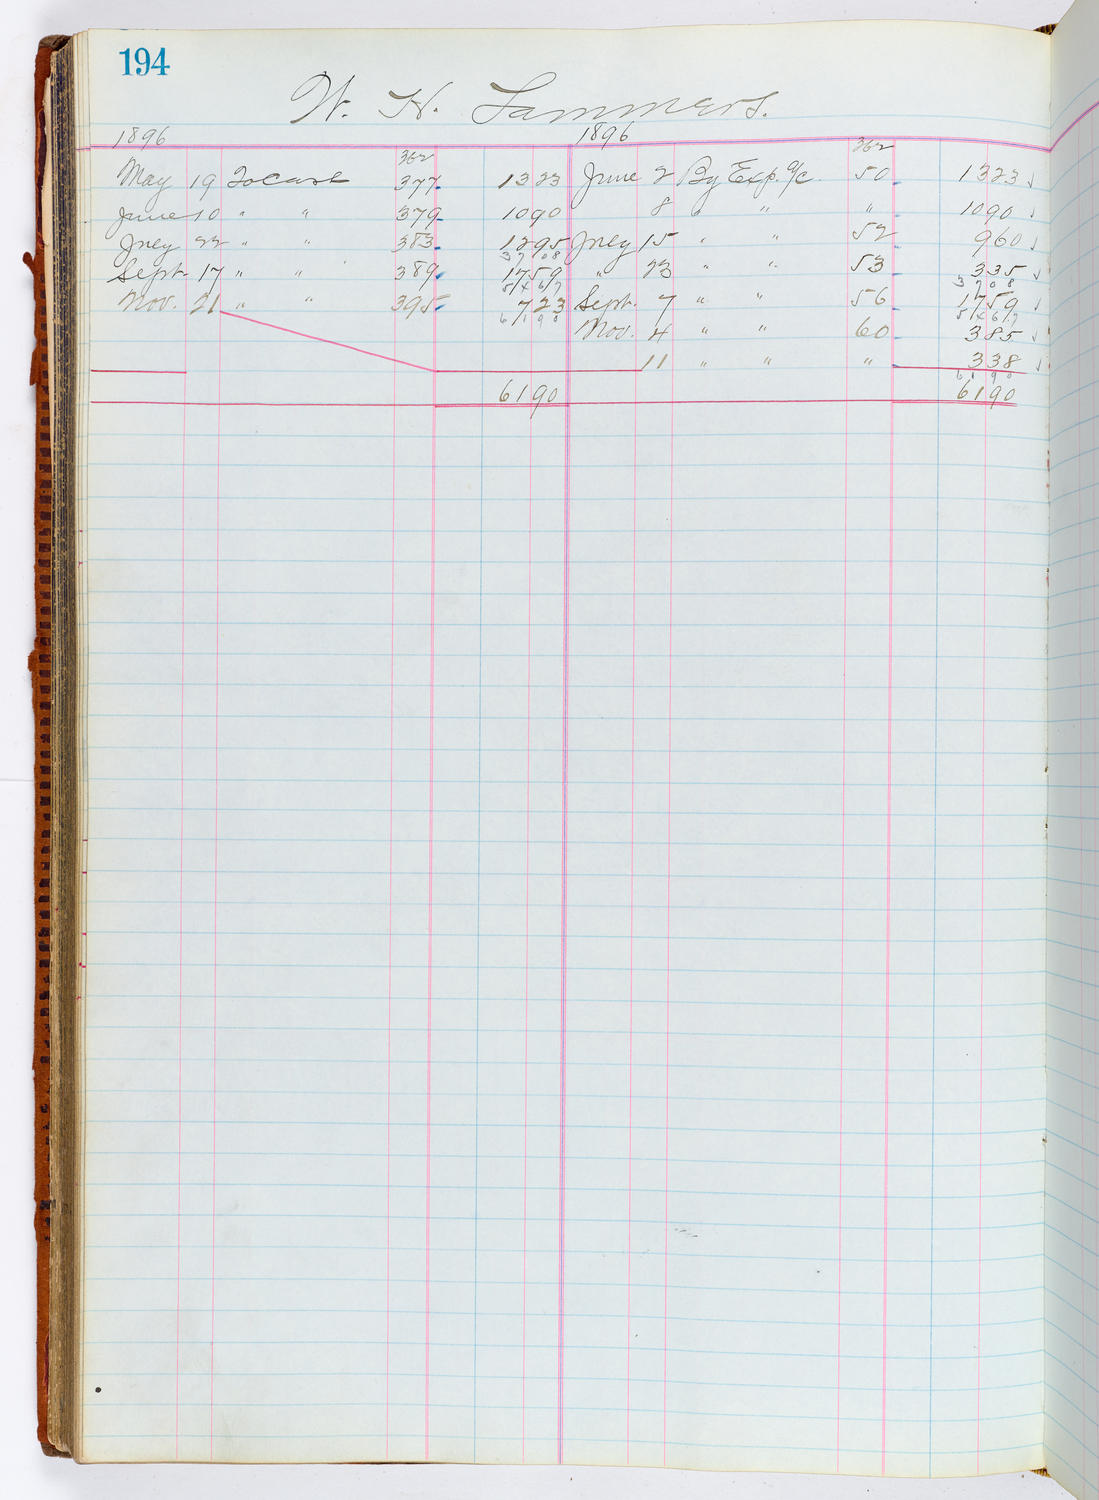 194
W. H. Sammers.
1896 1896
362 362
May 19 To Cash 377 1323 June 2 By Exp. a/c 50 1323 √
June 10 " " 379 1090 8 " " " 1090 √
July 22 " " 383 1295 July 15 " " 52 960 √
3708
Sept. 17 " " 389 1759 " 23 " " 53 335 √
5467 3708
Nov. 21 " " 395 723 Sept. 7 " " 56 1759 √
6190 5467
Nov. 4 " " 60 385 √
11 " " " 338 √
6190
6190 6190